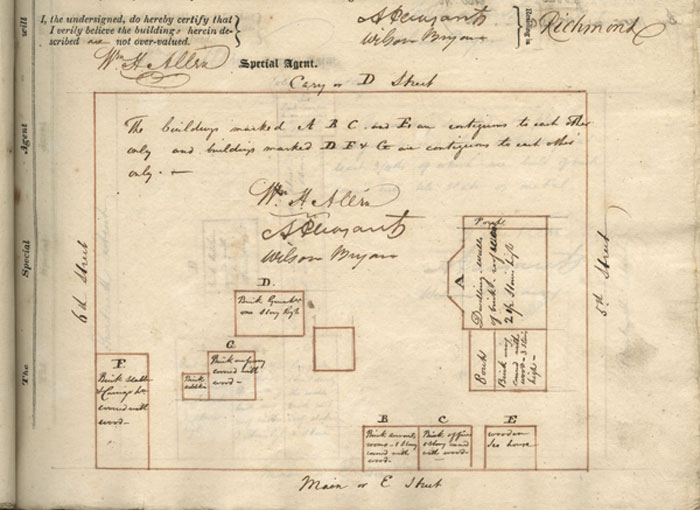 I, the undersigned, do hereby certify that
I verily believe the buildings herein de-
scribed are not over-valued.
Wm H Allen Special Agent.
A Pleasants
Wilson Bryan
Residing in
Richmond
will
Agent
The Special
Cary or D Street
The buildings marked A B C. and E are contiguous to each other
only and buildings marked D F & G are contiguous to each other
only.
Wm. H. Allen
A Pleasants
Wilson Bryan
6th Street
5th Street
A
Dwelling walls
of brick
Porch
Brick
covered with
wood
high
D.
Brick
one Story high
G
Brick
covered with
wood
Brick
F.
Brick Stable
&
covered with
wood
B
Brick
covered with
wood
C
Brick office
1 Story
with wood
E
wooden
Ice house
Main or E Street